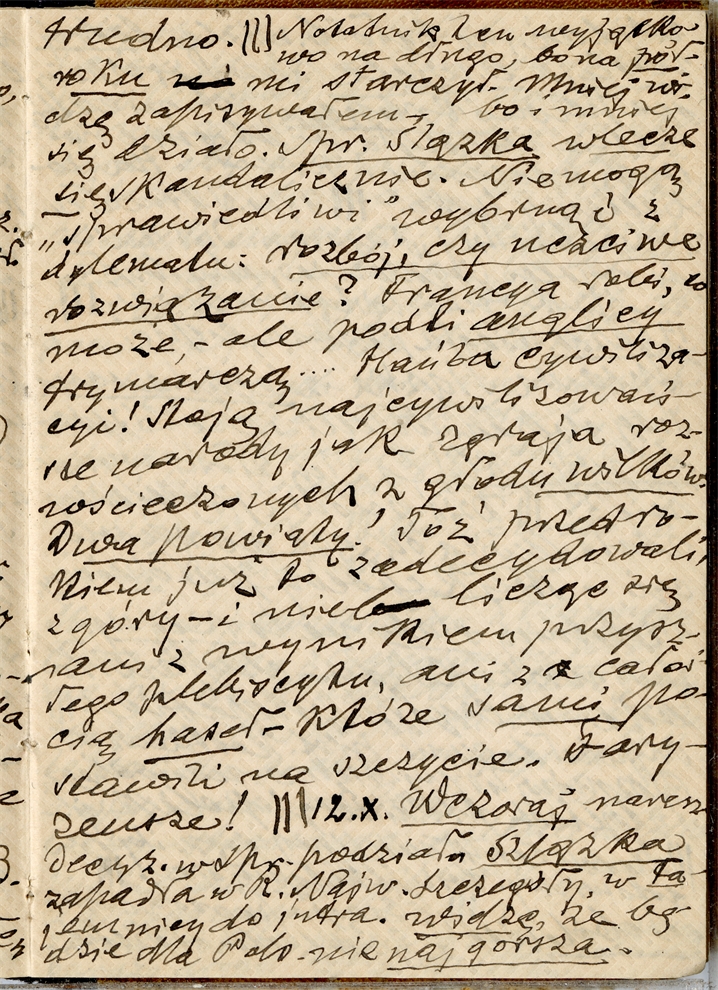 trudno. ||| Notatnik ten wyjątko-
wo na długo, bo na pół-
roku mi starczył. Mniej wi-
dzę zapisywałem, bo i mniej
się działo. Spr. Slązka wlecze
się skandalicznie. Nie mogą
„sprawiedliwi" wybrnąć z
dylematu: rozbój, czy uczciwe
rozwiązanie? Francya robi, co
może, - ale podli anglicy
frymarczą.... Hańba cywiliza-
cyi! Stoją najcywilizowań-
sze narody jak zgraja roz-
wścieczonych z głodu wilków.
Dwa powiaty! Toż przed ro-
kiem już to zadecydowali,
z góry - i nie licząc się
ani z wynikiem przysz-
łego plebiscytu, ani z całoś-
cią haseł - które sami po-
stawili na szczycie. Fary-
zeusze! ||| 12.X. Wczoraj naresz.
Decyz. w spr. podziału Szlązka
zapadła w R. Najw. Szczegóły w ta-
jemnicy do jutra. Widzę, że bę-
dzie dla Polo. nie najgorsza.